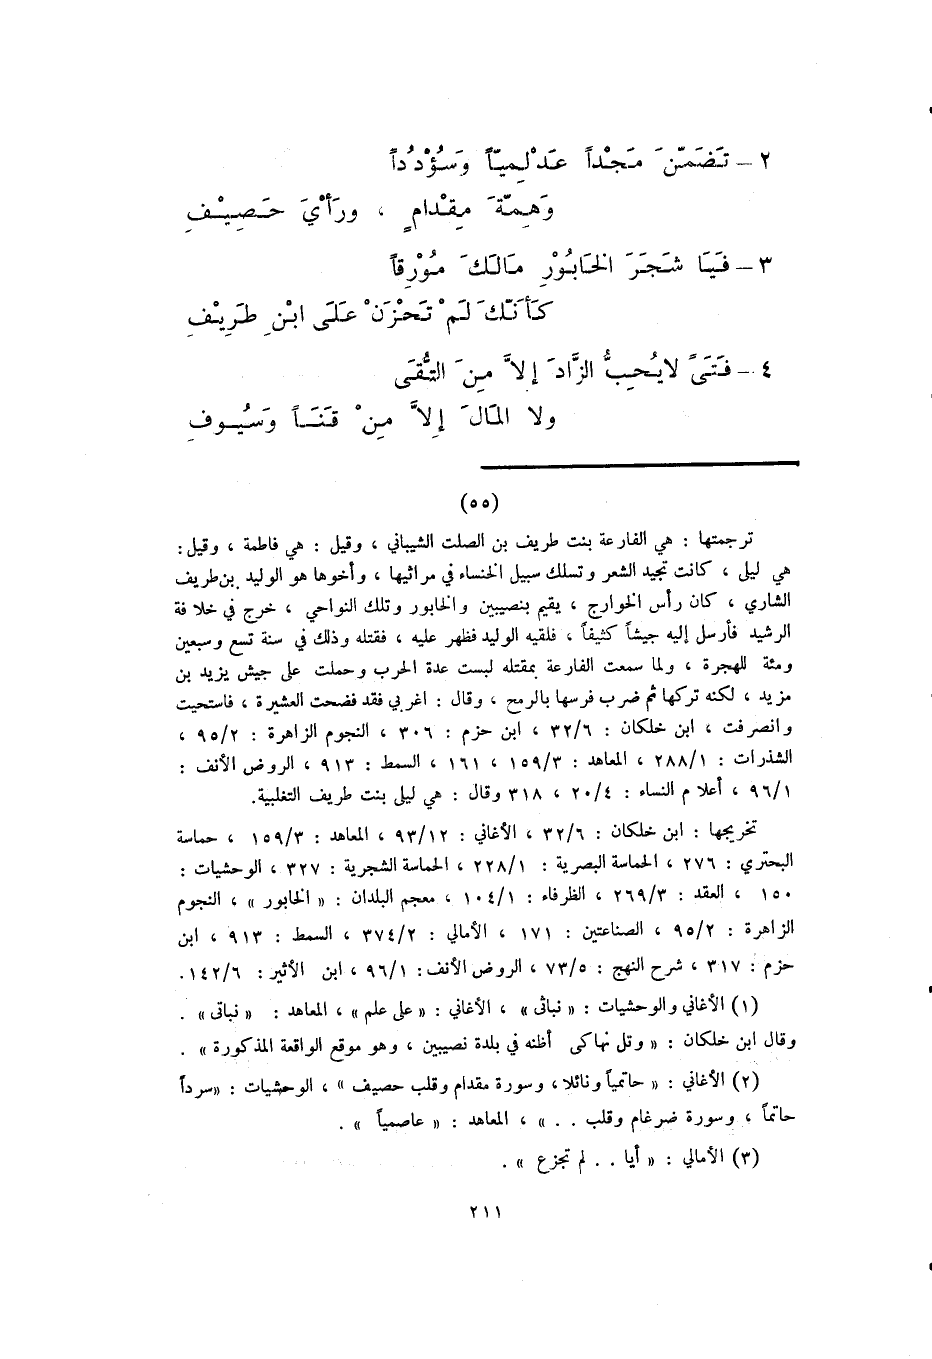 ٢ – تَضَمَّنَ مَجْداً عَدْلِميّاً وَسُؤْدُداً
وَهِمَّةَ مِقْدامٍ ، ورَأْيَ حَصِيْفِ
٣ – فَيَا شَجَرَ الخَابُوْرِ مَالَكَ مُوْرِقاً
كَأَنَّكَ لَمْ تَحْزَنْ عَلَى ابْنِ طَرِيْفِ
٤ – فَتَىً لايُحِبُّ الزَّادَ إلاَّ مِنَ التُّقَى
ولا المَالَ إلاَّ مِنْ قَنَاً وَسُيُوفِ
(٥٥)
ترجمتها : هي الفارعة بنت طريف بن الصلت الشيباني ، وقيل : هي فاطمة ، وقيل :
هي ليلى ، كانت تجيد الشعر وتسلك سبيل الخنساء في مراثيها ، وأخوها هو الوليد بن طريف
الشاري ، كان رأس الخوارج ، يقيم بنصيبين والخابور وتلك النواحي ، خرج في خلافة
الرشيد فأرسل إليه جيشاً كثيفاً ، فلقيه الوليد فظهر عليه ، فقتله وذلك في سنة تسع وسبعين
ومئة للهجرة ، ولما سمعت الفارعة بمقتله لبست عدة الحرب وحملت على جيش يزيد بن
مزيد ، لكنه تركها ثم ضرب فرسها بالرمح ، وقال : اغربي فقد فضحت العشيرة ، فاستحيت
وانصرفت ، ابن خلكان : ٣٢/٦ ، ابن حزم : ٣٠٦ ، النجوم الزاهرة : ٩٥/٢ ،
الشذرات : ٢٨٨/١ ، المعاهد : ١٥٩/٣ ، ١٦١ ، السمط : ٩١٣ ، الروض الأنف :
٩٦/١ ، أعلام النساء : ٢٠/٤ ، ٣١٨ وقال : هي ليلى بنت طريف التغلبية.
تخريجها : ابن خلكان : ٣٢/٦ ، الأغاني : ٩٣/١٢ ، المعاهد : ١٥٩/٣ ، حماسة
البحتري : ٢٧٦ ، الحماسة البصرية : ٢٢٨/١ ، الحماسة الشجرية : ٣٢٧ ، الوحشيات :
١٥٠ ، العقد : ٢٦٩/٣ ، الظرفاء : ١٠٤/١ ، معجم البلدان : « الخابور » ، النجوم
الزاهرة : ٩٥/٢ ، الصناعتين : ١٧١ ، الأمالي : ٣٧٤/٢ ، السمط : ٩١٣ ، ابن
حزم : ٣١٧ ، شرح النهج : ٧٣/٥ ، الروض الأنف: ٩٦/١ ، ابن الأثير : ١٤٢/٦.
(١) الأغاني والوحشيات : « نباثى » ، الأغاني : « على علم » ، المعاهد : « نباتى » .
وقال ابن خلكان : « وتل نهاكى أظنه في بلدة نصيبين ، وهو موقع الواقعة المذكورة » .
(٢) الأغاني : « حاتمياً ونائلا ، وسورة مقدام وقلب حصيف » ، الوحشيات : «سرداً
حاتماً ، وسورة ضرغام وقلب . . » ، المعاهد : « عاصمياً » .
(٣) الأمالي : « أيا . . لم تجزع » .
٢١١